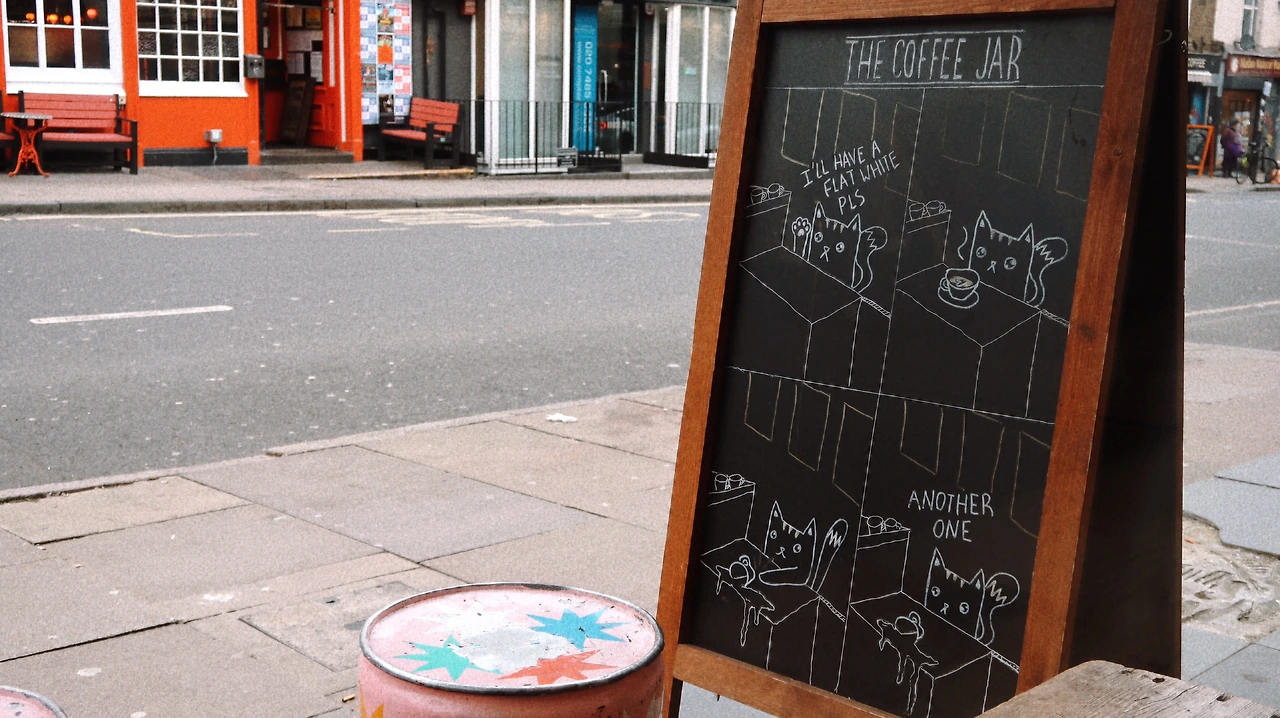 THE COFFEE JAR
I'LL HAVE A
FLAT WHITE
PLS
ANOTHER
ONE